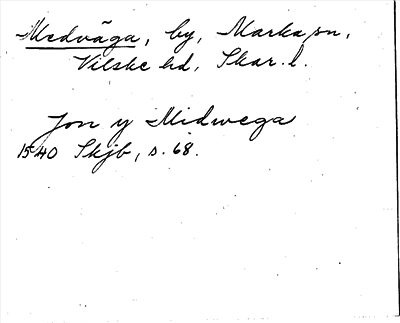 Medväga, by, Marka sn,
Vilske hd, Skar. l.
Jon y Midwega
1540 Skjb, s. 68.